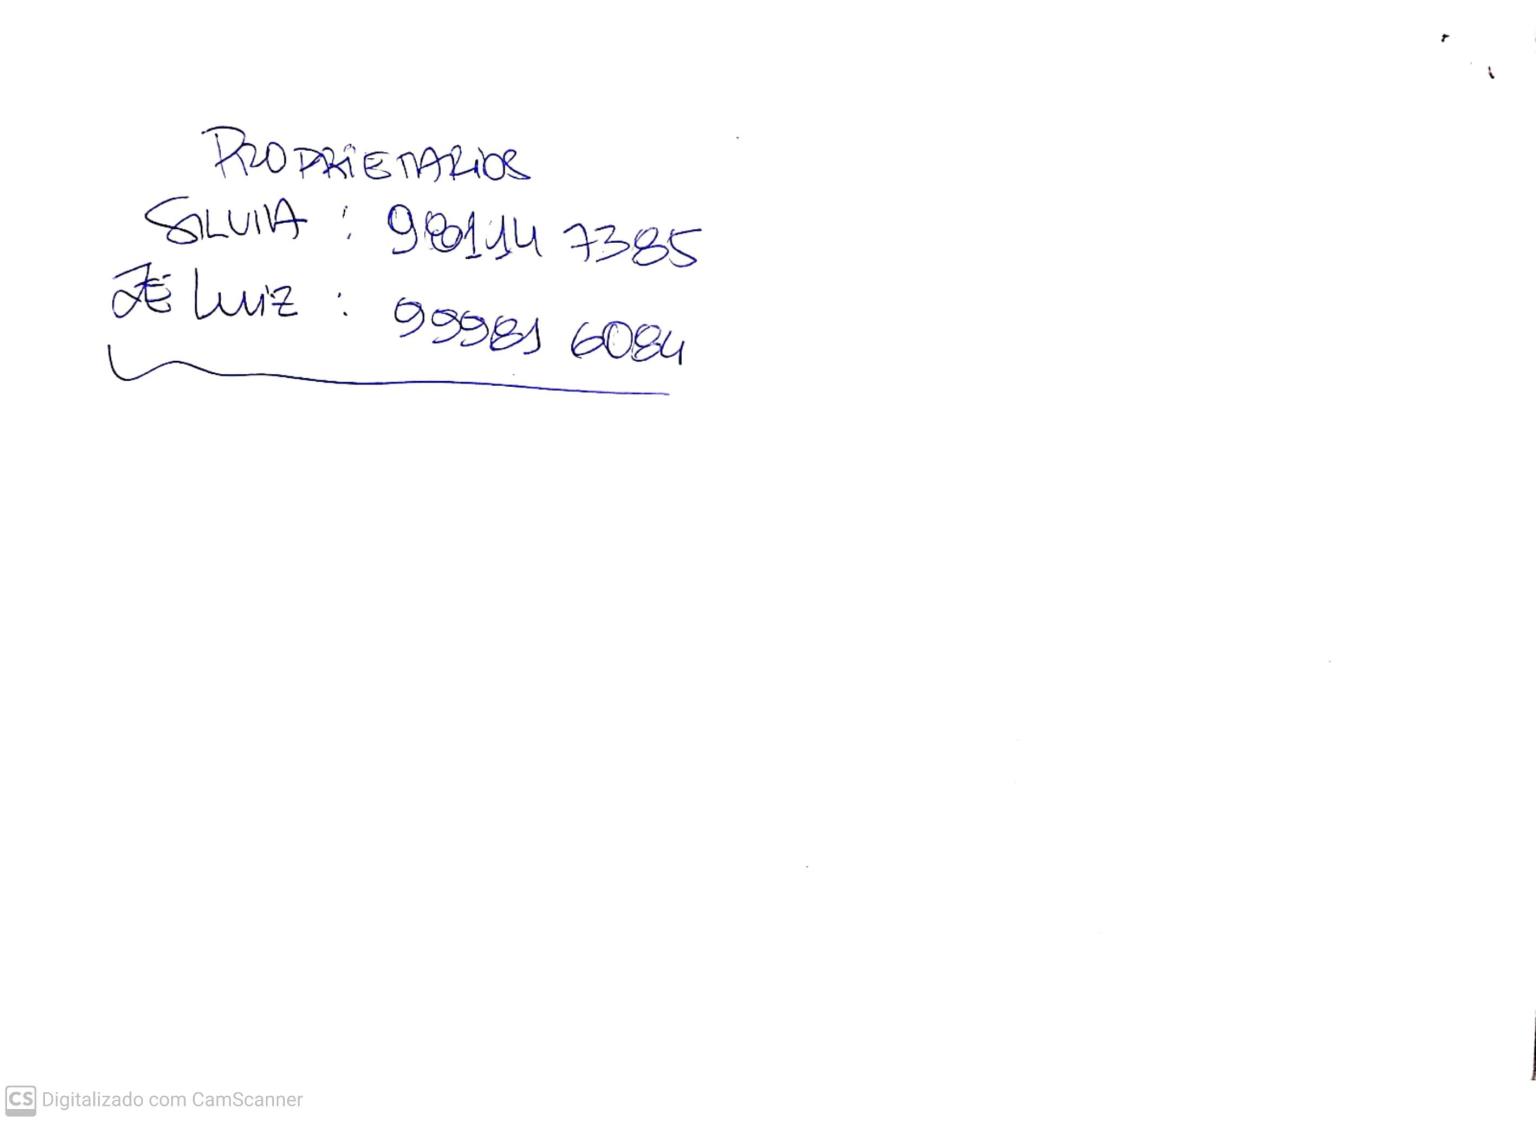 PROPRIETARIOS
SILVIA : 98114 7385
ZÉ LUIZ : 99981 6084
CS Digitalizado com CamScanner